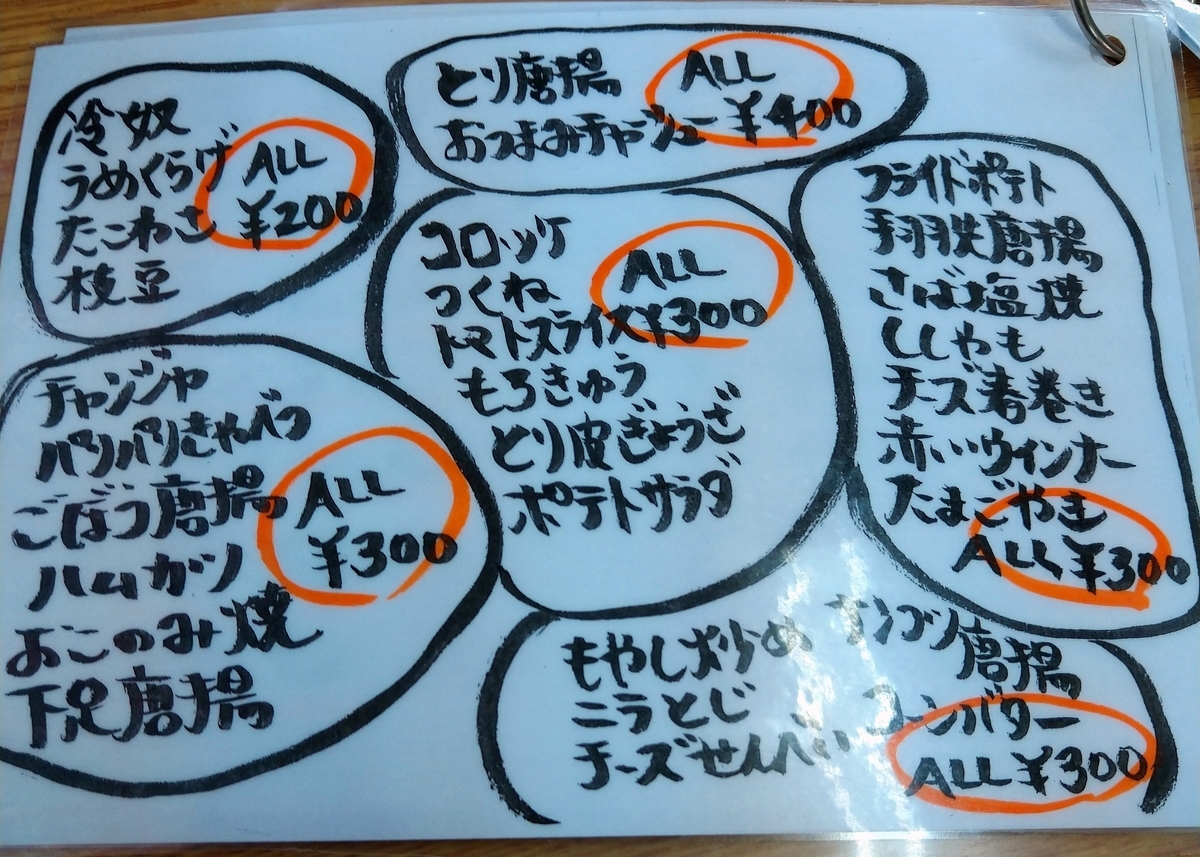 冷奴
うめくらげ
たこわさ
枝豆
ALL
¥200
とり唐揚
おつまみチャーシュー
ALL
¥400
コロッケ
つくね
トマトスライス
もろきゅう
とり皮ぎょうざ
ポテトサラダ
ALL
¥300
フライドポテト
手羽先唐揚
さば塩焼
ししゃも
チーズ春巻き
赤いウインナー
たまごやき
ALL ¥300
チャンジャ
パリパリきゃべつ
ごぼう唐揚
ハムカツ
おこのみ焼
下足唐揚
ALL
¥300
もやし炒め
ニラとじ
チーズせんべい
ナンコツ唐揚
コーンバター
ALL ¥300